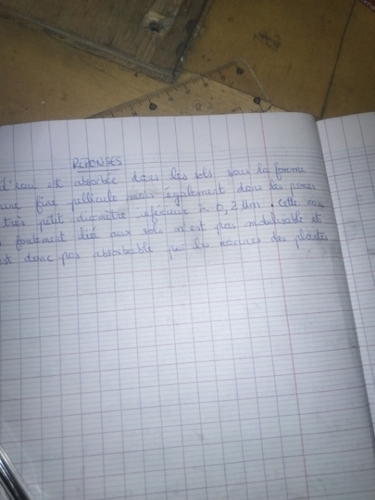 REPONSES
d'eau est absorbée dans les sols sous la forme
une fine pellicule mais également dans les pores
très petit diamètre inférieur à 0,2 µm. Cette eau
fortement lié aux sols n'est pas mobilisable et
est donc pas absorbable par les racines des plantes